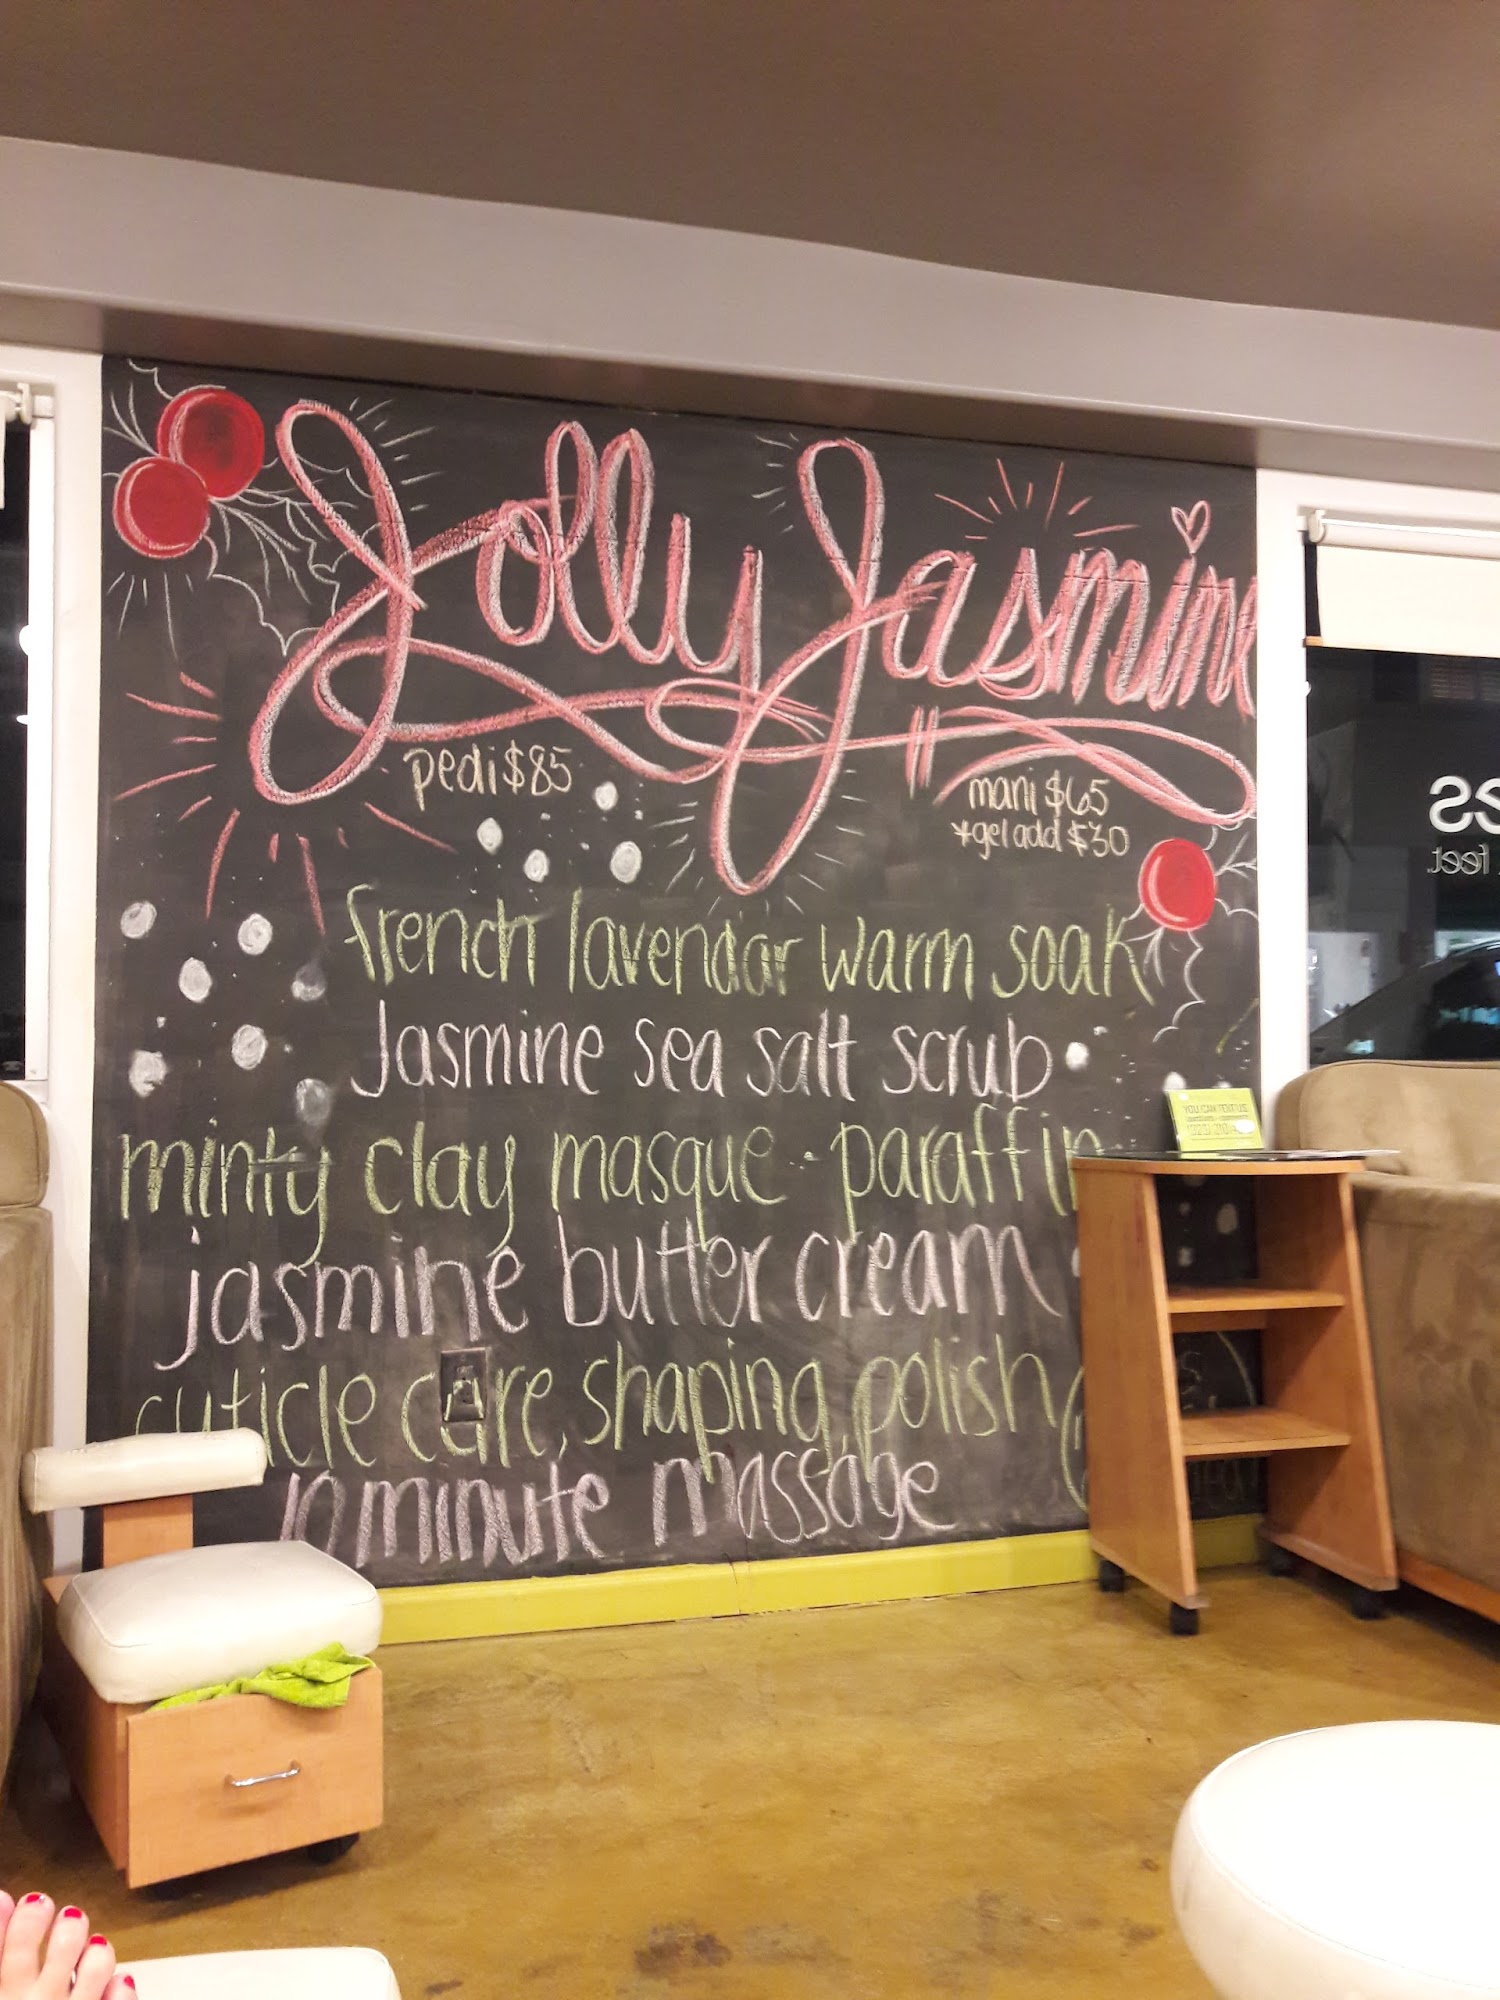 Jolly Jasmine
pedi $85
mani $65
*gel add $30
french lavendar warm soak
Jasmine sea salt scrub
minty clay masque - paraffin
jasmine butter cream
cuticle care, shaping, polish
10 minute massage
YOU CAN TEXT US
es
feet.